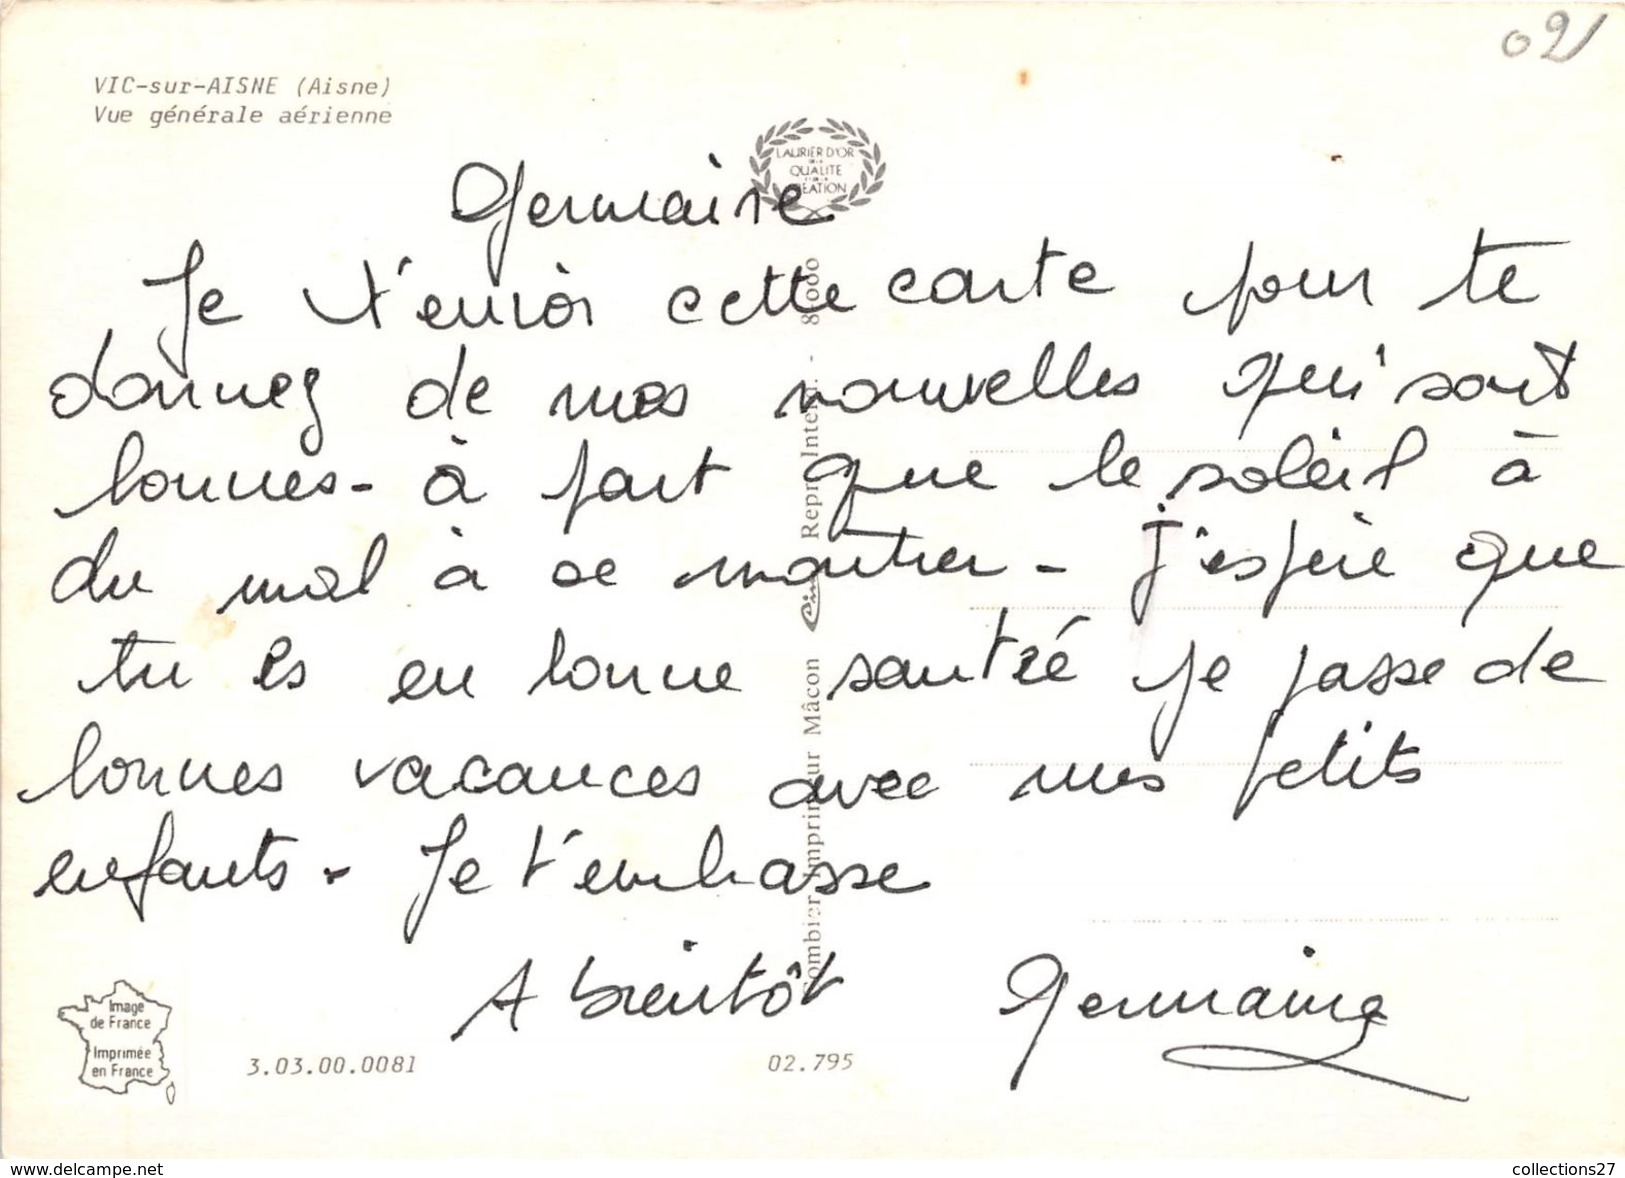 021
VIC-sur-AISNE (Aisne)
Vue générale aérienne
LAURIER D'OR
DE LA
QUALITE
ET DE LA
Germaine
Je t'envoi cette carte pour te
donnez de mes nouvelles qui sont
bonnes - à part que le soleil à
du mal à se montrer - J'espère que
tu es en bonne santé je passe de
bonnes vacances avec mes petits
enfants - Je t'embrasse
A bientôt Germaine
Combier Imprimeur Mâcon
Image
de France
Imprimée
en France
3.03.00.0081
02.795
www.delcampe.net
collections27